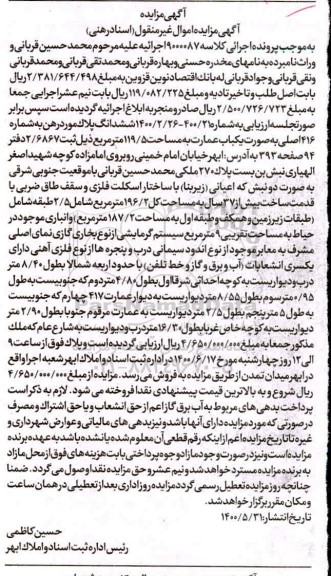 آگهی مزایده
آگهی مزایده اموال غیر منقول (اسناد رهنی)
به موجب پرونده اجرائی کلاسه ۱۹۰۰۰۰۸۷ اجرائیه علیه مرحوم محمدحسین قربانی و
وراث نامبرده به نامهای مخدره حسنی و بهاره قربانی و محمدتقی قربانی و محمد قربانی
و نقی قربانی و جواد قربانی له بانک اقتصاد نوین قزوین به مبلغ ۲/۳۸۱/۶۴۴/۴۹۸ ریال
بابت اصل طلب و تاخیر تادیه و مبلغ ۱۱۹/۰۸۲/۲۲۵ ریال بابت نیم عشر اجرایی جمعا
به مبلغ ۲/۵۰۰/۷۲۶/۷۲۳ ریال صادر و منجر به ابلاغ اجرائیه گردیده است سپس برابر
صورتجلسه ارزیابی به شماره ۴۰۰۲۱-۱۴۰۰/۲/۲۶ ششدانگ پلاک مورد رهن به شماره
۴۱۶ اصلی به صورت یکباب عمارت به مساحت ۱۱۹/۵ مترمربع ذیل ثبت ۲۶۸۶۷ دفتر
۹۴ صفحه ۳۹۳ به آدرس: ابهر خیابان امام خمینی روبروی امامزاده کوچه شهید اصغر
الهیاری نبش بن بست پلاک ۲۷۰ ملکی محمدحسین قربانی با موقعیت جنوبی شرقی
به صورت دو نبش که اعیانی (زیربنا) با ساختار اسکلت فلزی و سقف طاق ضربی با
قدمت ساخت بیش از ۳۷ سال به مساحت کل ۱۹۶/۲ مترمربع شامل ۲/۵ طبقه شامل
(طبقات زیرزمین و همکف و طبقه اول به مساحت ۱۸۷/۲ مترمربع) و انباری موجود در
حیاط به مساحت تقریبی ۹ مترمربع سیستم گرمایشی از نوع بخاری گازی نمای اصلی
مشرف به معابر موجود از نوع اندود سیمانی درب و پنجره ها از نوع فلزی آهنی دارای
یکسری انشعابات (آب و برق و گاز و خط تلفن) با حدود اربعه شمالا بطول ۸/۴۰ متر
درب و دیواریست به کوچه احداثی شرقا اول بطول ۴/۸۰ متر دوم که جنوبیست به طول
۰/۹۵ متر سوم بطول ۸/۵۵ متر دیواریست به دیوار عمارت ۴۱۷ چهارم که جنوبیست
به طول ۵ متر پنجم بطول ۲/۵ متر دیواریست به عمارت مرقوم جنوبا بطول ۲/۹۰ متر
دیواریست به کوچه خاص غربا بطول ۱۶/۳۰ متر درب و دیواریست به شارع عام که ملک
مذکور جمعا به مبلغ ۴/۶۵۰/۰۰۰/۰۰۰ ریال ارزیابی گردیده است و پلاک فوق از ساعت ۹
الی ۱۲ روز چهارشنبه مورخ ۱۴۰۰/۶/۱۷ در اداره ثبت اسناد و املاک ابهر شعبه اجرا واقع
در ابهر میدان تمدن از طریق مزایده به فروش می رسد. مزایده از مبلغ ۴/۶۵۰/۰۰۰/۰۰۰
ریال شروع و به بالاترین قیمت پیشنهادی نقدا فروخته می شود. لازم به ذکر است
پرداخت بدهی های مربوط به آب برق گاز اعم از حق انشعاب و یا حق اشتراک و مصرف
در صورتی که مورد مزایده دارای آنها باشد و نیز بدهی های مالیاتی و عوارض شهرداری و
غیره تا تاریخ مزایده اعم از اینکه رقم قطعی آن معلوم شده یا نشده باشد به عهده برنده
مزایده است و نیز در صورت وجود مازاد وجوه پرداختی بابت هزینه های فوق از محل مازاد
به برنده مزایده مسترد خواهد شد و نیم عشر و حق مزایده نقدا وصول می گردد. ضمنا
چنانچه روز مزایده تعطیل رسمی گردد مزایده روز اداری بعد از تعطیلی در همان ساعت
و مکان مقرر برگزار خواهد شد.
تاریخ انتشار: ۱۴۰۰/۵/۳۱
حسین کاظمی
رئیس اداره ثبت اسناد و املاک ابهر